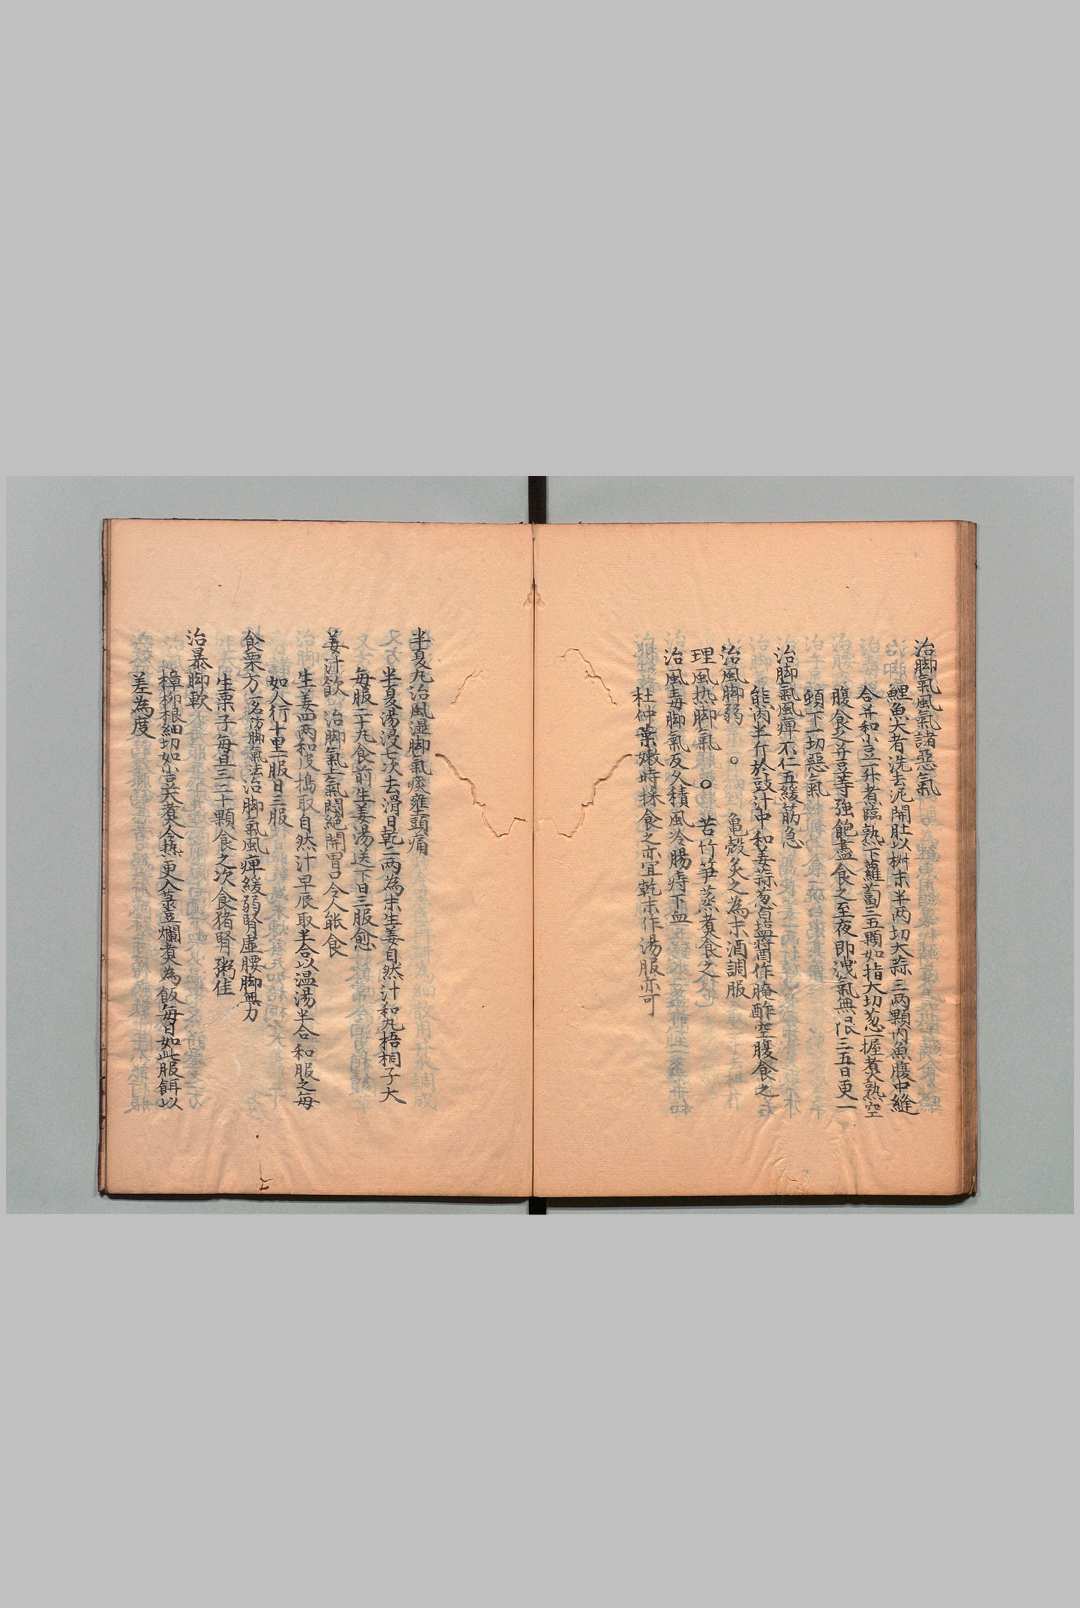 治脚氣風氣諸惡氣
鯉魚大者洗去泥開肚以 末半两切大蒜三两顆內魚腹中縫
合并和小豆一升煮臨熟下蘿蔔三五顆如指大切葱一握煮熟空
腹食之并豆等強飽盡食之至夜即洩氣無限三五日更一
頓下一切惡氣
治脚氣風痺不仁五緩筋急
熊肉半斤於豉汁中和姜蒜葱白塩醤作腌酢空腹食之
治風脚弱 ○ 亀殼炙之為末酒調服
理風热脚氣 ○ 苦竹笋蒸煮食之
治風毒脚氣及久積風冷腸痔下血
杜仲葉嫩時採食之亦宜乾末作湯服亦可
半夏丸治風湿脚氣痰壅頭痛
半夏湯浸七次去滑日乾二两為末生姜自然汁和丸梧桐子大
每服二十丸食前生姜湯送下日三服愈
姜汁飲 治脚氣上氣悶絕開胃口令人能食
生姜四两和皮搗取自然汁早辰取半合以温湯半合和服之每
如人行十里一服日三服
食栗方 一名 脚氣法治脚氣風痺緩弱腎虛腰脚無力
生栗子每旦三二十顆食之次食猪腎粥佳
治暴脚軟
樟柳根細切如小豆大煮令熟更入菉豆爛煮為飯每日如此服餌以
差為度